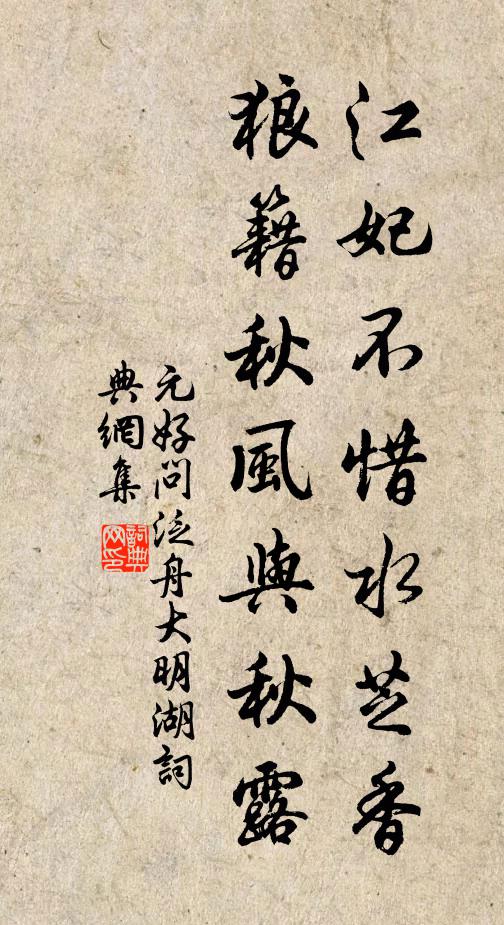 江妃不惜水芝香
狼籍秋風與秋露
元好問泛舟大明湖詞
典網集
詞典网印